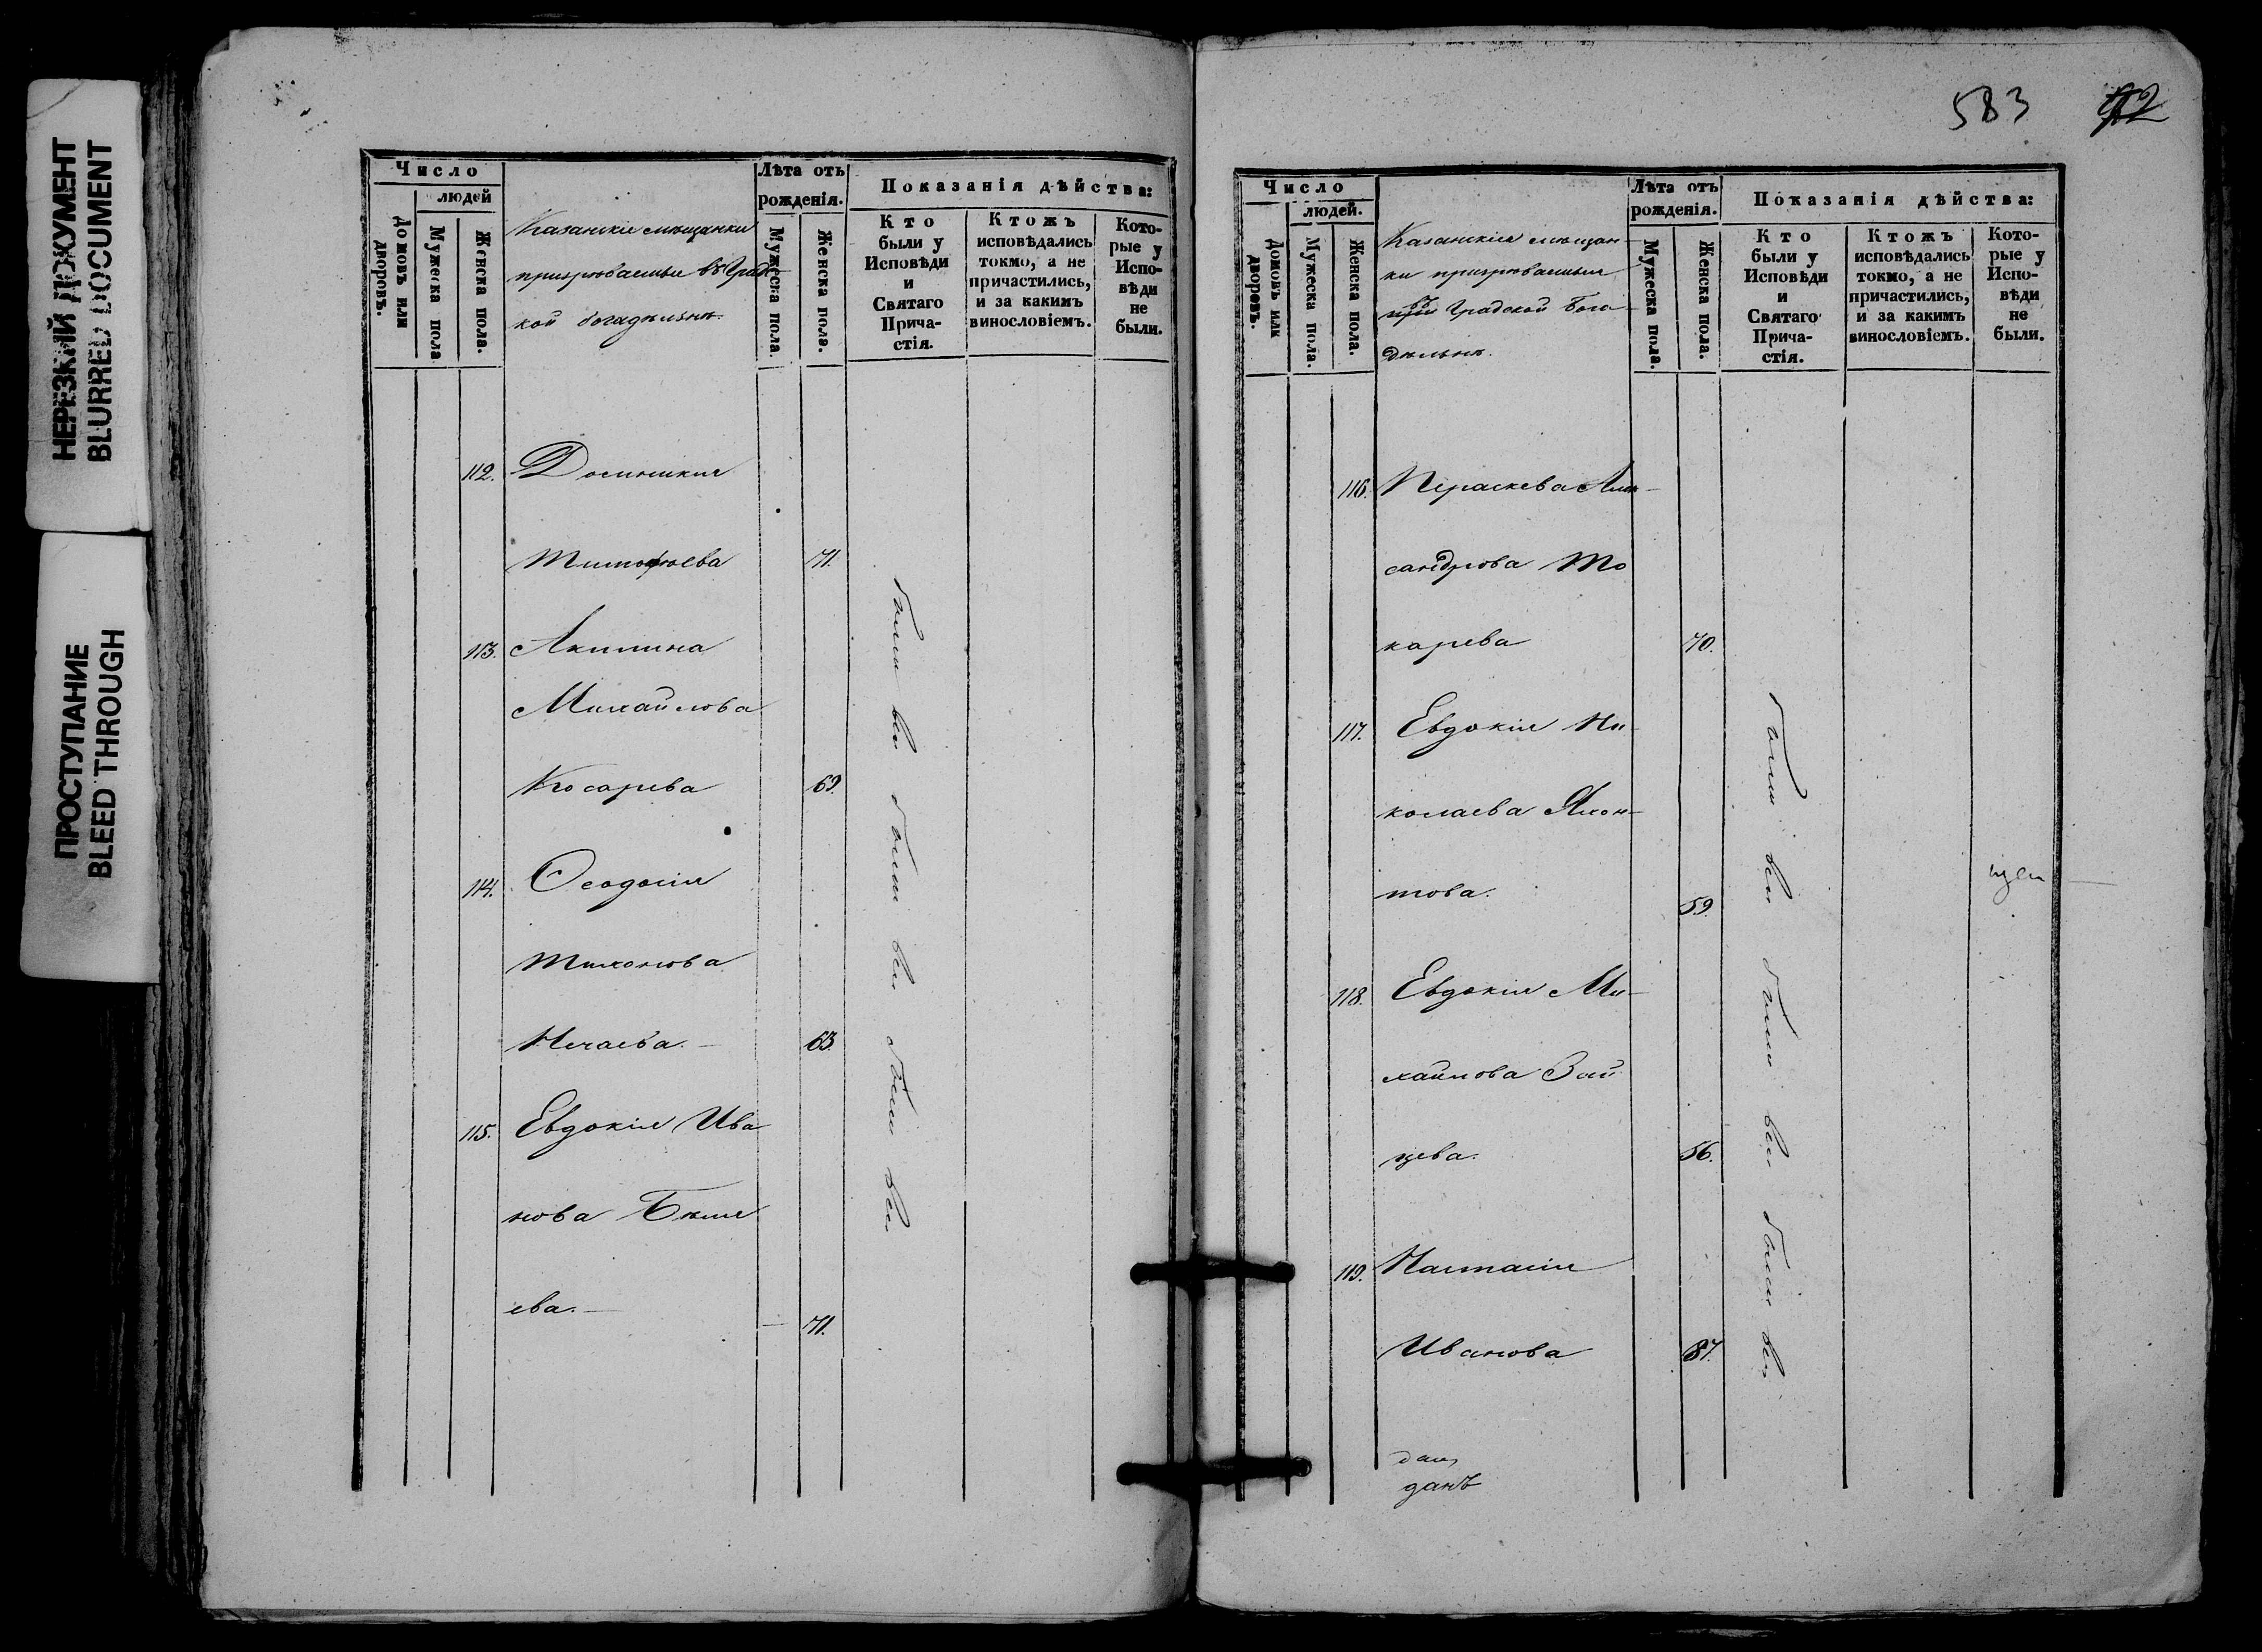 НЕРЕЗКИЙ ДОКУМЕНТ
BLURRED DOCUMENT
ПРОСТУПАНИЕ
BLEED THROUGH
Число
людей
Домовъ или дворовъ.
Мужеска пола
Женска пола.
Казанскіе мѣщанки
призрѣваемыя въ Градс-
кой богадѣльнѣ.
Лѣта отъ
рожденія.
Мужеска пола.
Женска пола.
Показанія дѣйства:
Кто
были у
Исповѣди
и
Святаго
Прича-
стія.
Ктожъ
исповѣдались
токмо, а не
причастились,
и за какимъ
винословіемъ.
Кото-
рые у
Испо-
вѣди
не
были.
112.
Тимофѣева 71.
113. Акилина
Михайлова
Косарева 69.
114. Ѳеодосія
Тихонова
Нечаева. 63.
115. Евдокія Ива
нова Бѣля
ева. 71.
были вси были вси были вси
583
Число
людей.
Домовъ или дворовъ.
Мужеска пола.
Женска пола.
Казанскія мѣщан-
ки призрѣваемыя
въ
при Градской Бога-
дѣльнѣ.
Лѣта отъ
рожденія.
Мужеска пола.
Женска пола.
Показанія дѣйства:
Кто
были у
Исповѣди
и
Святаго
Прича-
стія.
Ктожъ
исповѣдались
токмо, а не
причастились,
и за какимъ
винословіемъ.
Кото-
рые у
Испо-
вѣди
не
были.
116. Параскева Алек-
сандрова То
карева 70.
117. Евдокія Ни-
колаева Яхон-
това. 59.
118. Евдокія Ми-
хайлова Зай
цева. 56.
119. Настасія
Иванова 87.
были вси были вси были вси
данъ